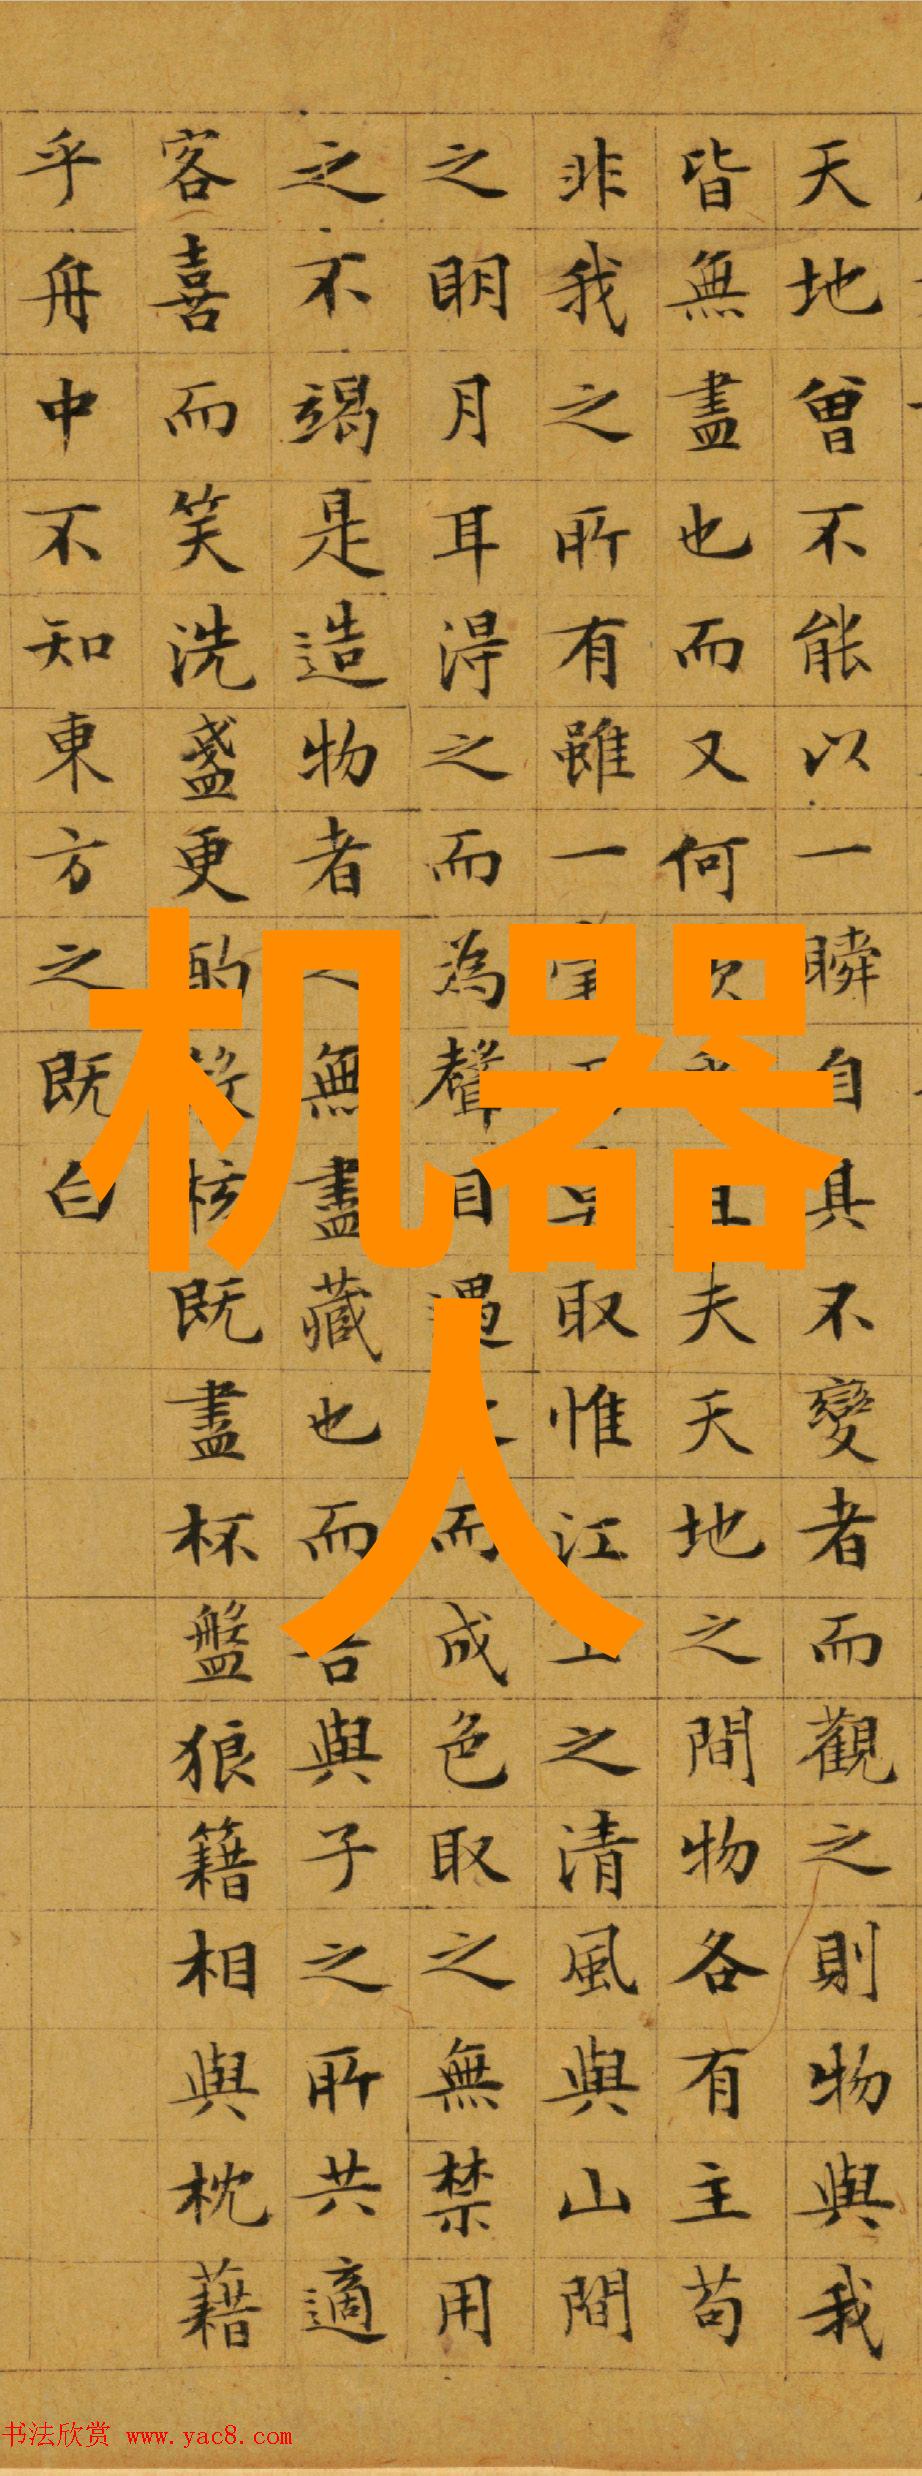 天地曾不能以一瞬自其不變者而觀之則物與我
皆無盡也而又何且夫天地之間物各有主苟
非我之所有雖一取惟江上之清風與山間
之明月耳得之而為聲目遇之而成色取之無禁用
之不竭是造物者之無盡藏也而吾與子之所共適
客喜而笑洗盞更酌核既盡杯盤狼籍相與枕藉
乎舟中不知東方之既白
机器
人
书法欣赏 www.yac8.com